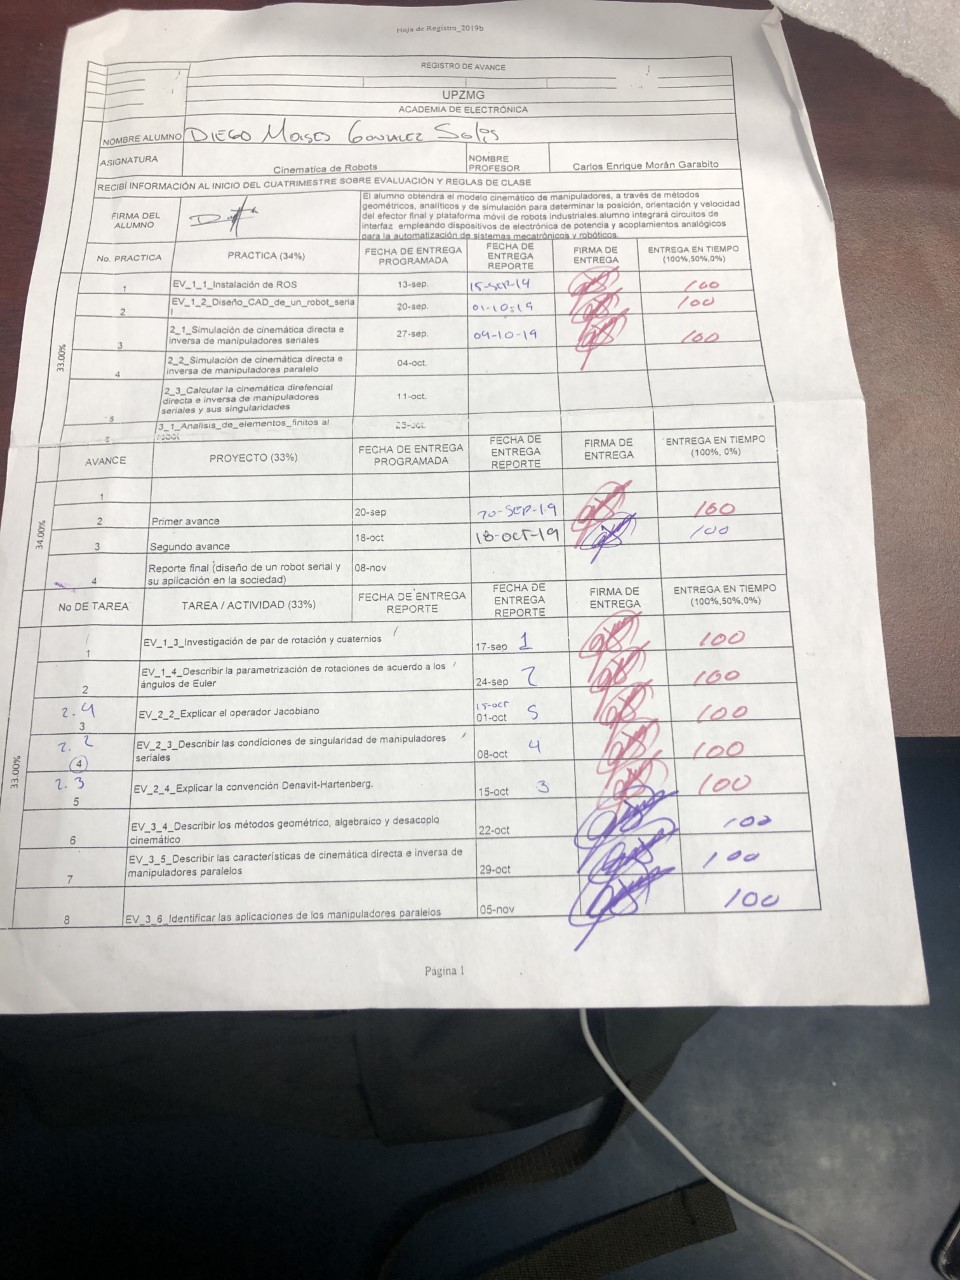 Hoja de Registro_2019b
REGISTRO DE AVANCE
UPZMG
ACADEMIA DE ELECTRÓNICA
NOMBRE ALUMNO DIEGO MOISES GONZALEZ Solis
ASIGNATURA Cinematica de Robots NOMBRE PROFESOR Carlos Enrique Morán Garabito
RECIBÍ INFORMACIÓN AL INICIO DEL CUATRIMESTRE SOBRE EVALUACIÓN Y REGLAS DE CLASE
FIRMA DEL ALUMNO
El alumno obtendra el modelo cinemático de manipuladores, a través de métodos
geométricos, analíticos y de simulación para determinar la posición, orientación y velocidad
del efector final y plataforma móvil de robots industriales.alumno integrará circuitos de
interfaz empleando dispositivos de electrónica de potencia y acoplamientos analógicos
para la automatización de sistemas mecatrónicos y robóticos.
No. PRACTICA PRACTICA (34%) FECHA DE ENTREGA PROGRAMADA FECHA DE ENTREGA REPORTE FIRMA DE ENTREGA ENTREGA EN TIEMPO (100%,50%,0%)
33.00%
1 EV_1_1_Instalación de ROS 13-sep. 15-SEP-19 100
2 EV_1_2_Diseño_CAD_de_un_robot_seria l 20-sep. 01-10-19 100
3 2_1_Simulación de cinemática directa e inversa de manipuladores seriales 27-sep. 04-10-19 100
4 2_2_Simulación de cinemática directa e inversa de manipuladores paralelo 04-oct.
5 2_3_Calcular la cinemática direfencial directa e inversa de manipuladores seriales y sus singularidades 11-oct.
3_1_Analisis_de_elementos_finitos al robot 25-oct.
AVANCE PROYECTO (33%) FECHA DE ENTREGA PROGRAMADA FECHA DE ENTREGA REPORTE FIRMA DE ENTREGA ENTREGA EN TIEMPO (100%, 0%)
34.00%
1
2 Primer avance 20-sep 20-SEP-19 100
3 Segundo avance 18-oct 18-OCT-19 100
4 Reporte final (diseño de un robot serial y su aplicación en la sociedad) 08-nov
No DE TAREA TAREA / ACTIVIDAD (33%) FECHA DE ENTREGA REPORTE FECHA DE ENTREGA REPORTE FIRMA DE ENTREGA ENTREGA EN TIEMPO (100%,50%,0%)
33.00%
1 EV_1_3_Investigación de par de rotación y cuaternios 17-sep 1 100
2 EV_1_4_Describir la parametrización de rotaciones de acuerdo a los ángulos de Euler 24-sep 2 100
2.4 3 EV_2_2_Explicar el operador Jacobiano 15-oct 01-oct 5 100
2.2 4 EV_2_3_Describir las condiciones de singularidad de manipuladores seriales 08-oct 4 100
2.3 5 EV_2_4_Explicar la convención Denavit-Hartenberg. 15-oct 3 100
6 EV_3_4_Describir los métodos geométrico, algebraico y desacoplo cinemático 22-oct 100
7 EV_3_5_Describir las características de cinemática directa e inversa de manipuladores paralelos 29-oct 100
8 EV_3_6_Identificar las aplicaciones de los manipuladores paralelos 05-nov 100
Página 1